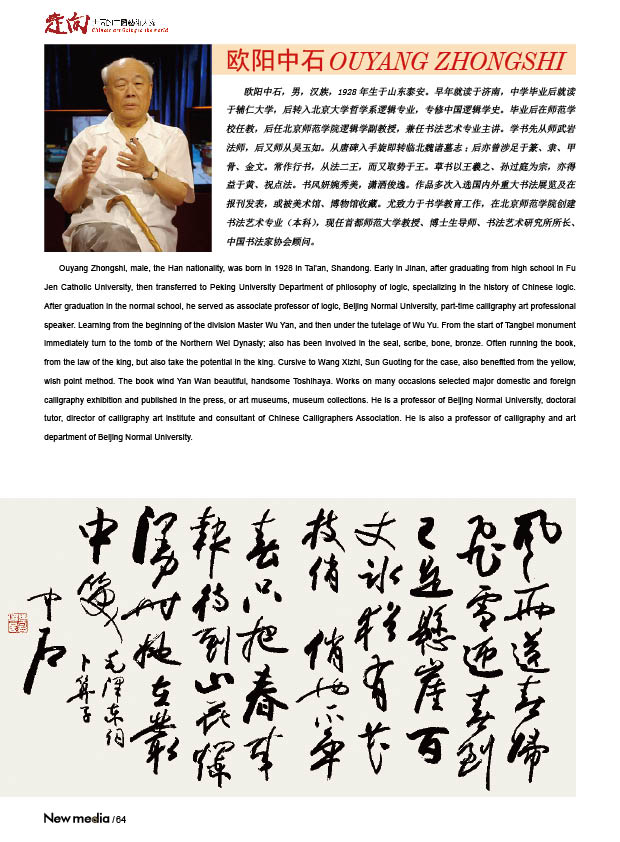 走向
Chinese art Going to the world
欧阳中石 OUYANG ZHONGSHI
欧阳中石，男，汉族，1928 年生于山东泰安。早年就读于济南，中学毕业后就读
于辅仁大学，后转入北京大学哲学系逻辑专业，专修中国逻辑学史。毕业后在师范学
校任教，后任北京师范学院逻辑学副教授，兼任书法艺术专业主讲。学书先从师武岩
法师，后又师从吴玉如。从唐碑入手旋即转临北魏诸墓志；后亦曾涉足于篆、隶、甲
骨、金文。常作行书，从法二王，而又取势于王。草书以王羲之、孙过庭为宗，亦得
益于黄、祝点法。书风妍婉秀美，潇洒俊逸。作品多次入选国内外重大书法展览及在
报刊发表，或被美术馆、博物馆收藏。尤致力于书学教育工作，在北京师范学院创建
书法艺术专业（本科），现任首都师范大学教授、博士生导师、书法艺术研究所所长、
中国书法家协会顾问。
Ouyang Zhongshi, male, the Han nationality, was born in 1928 in Tai'an, Shandong. Early in Jinan, after graduating from high school in Fu
Jen Catholic University, then transferred to Peking University Department of philosophy of logic, specializing in the history of Chinese logic.
After graduation in the normal school, he served as associate professor of logic, Beijing Normal University, part-time calligraphy art professional
speaker. Learning from the beginning of the division Master Wu Yan, and then under the tutelage of Wu Yu. From the start of Tangbei monument
immediately turn to the tomb of the Northern Wei Dynasty; also has been involved in the seal, scribe, bone, bronze. Often running the book,
from the law of the king, but also take the potential in the king. Cursive to Wang Xizhi, Sun Guoting for the case, also benefited from the yellow,
wish point method. The book wind Yan Wan beautiful, handsome Toshihaya. Works on many occasions selected major domestic and foreign
calligraphy exhibition and published in the press, or art museums, museum collections. He is a professor of Beijing Normal University, doctoral
tutor, director of calligraphy art institute and consultant of Chinese Calligraphers Association. He is also a professor of calligraphy and art
department of Beijing Normal University.
風雨送春歸
飛雪迎春到
已是懸崖百
丈冰猶有花
枝俏俏也不爭
春只把春來
報待到山花爛
漫時她在叢
中笑
毛澤東詞
卜算子
中石
New media / 64